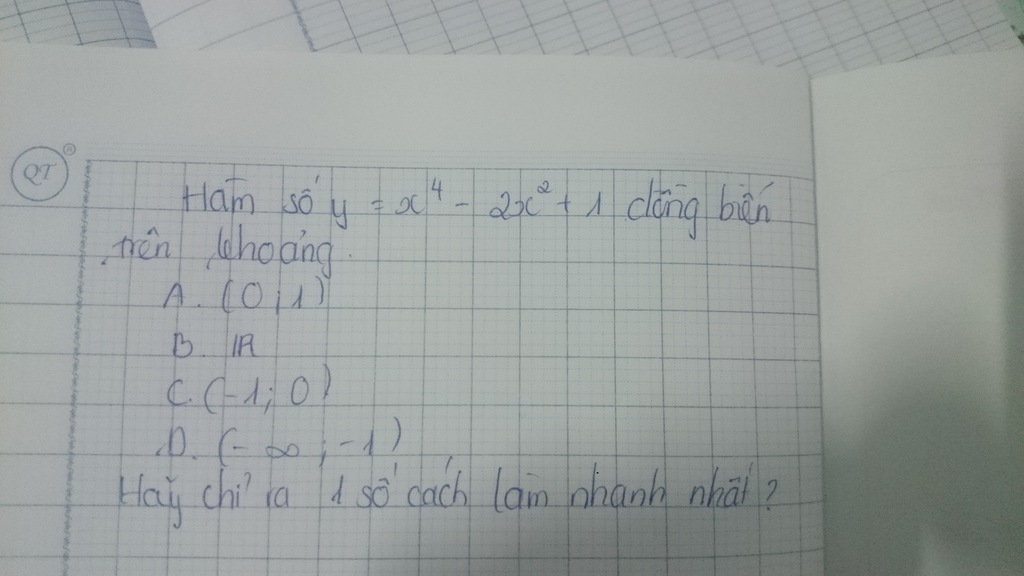 QT
Hàm số y = x⁴ - 2x² + 1 đồng biến
trên khoảng.
A. (0; 1)
B. ℝ
C. (-1; 0)
D. (-∞; -1)
Hãy chỉ ra 1 số cách làm nhanh nhất?